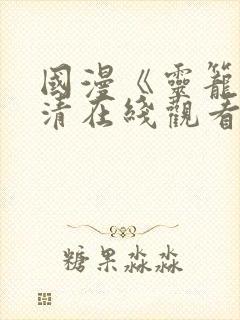 國漫《靈籠
清在綫觀看
糖果淼淼